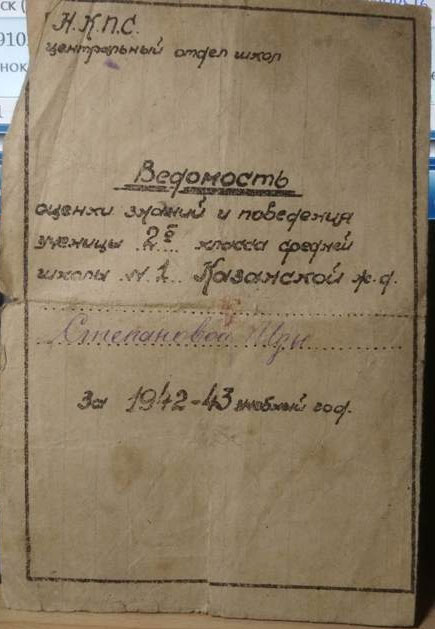 Н.К.П.С.
центральный отдел школ
Ведомость
оценки знаний и поведения
ученицы 2й класса средней
школы №1 Казанской ж.д.
Степановой
За 1942-43 учебный год.